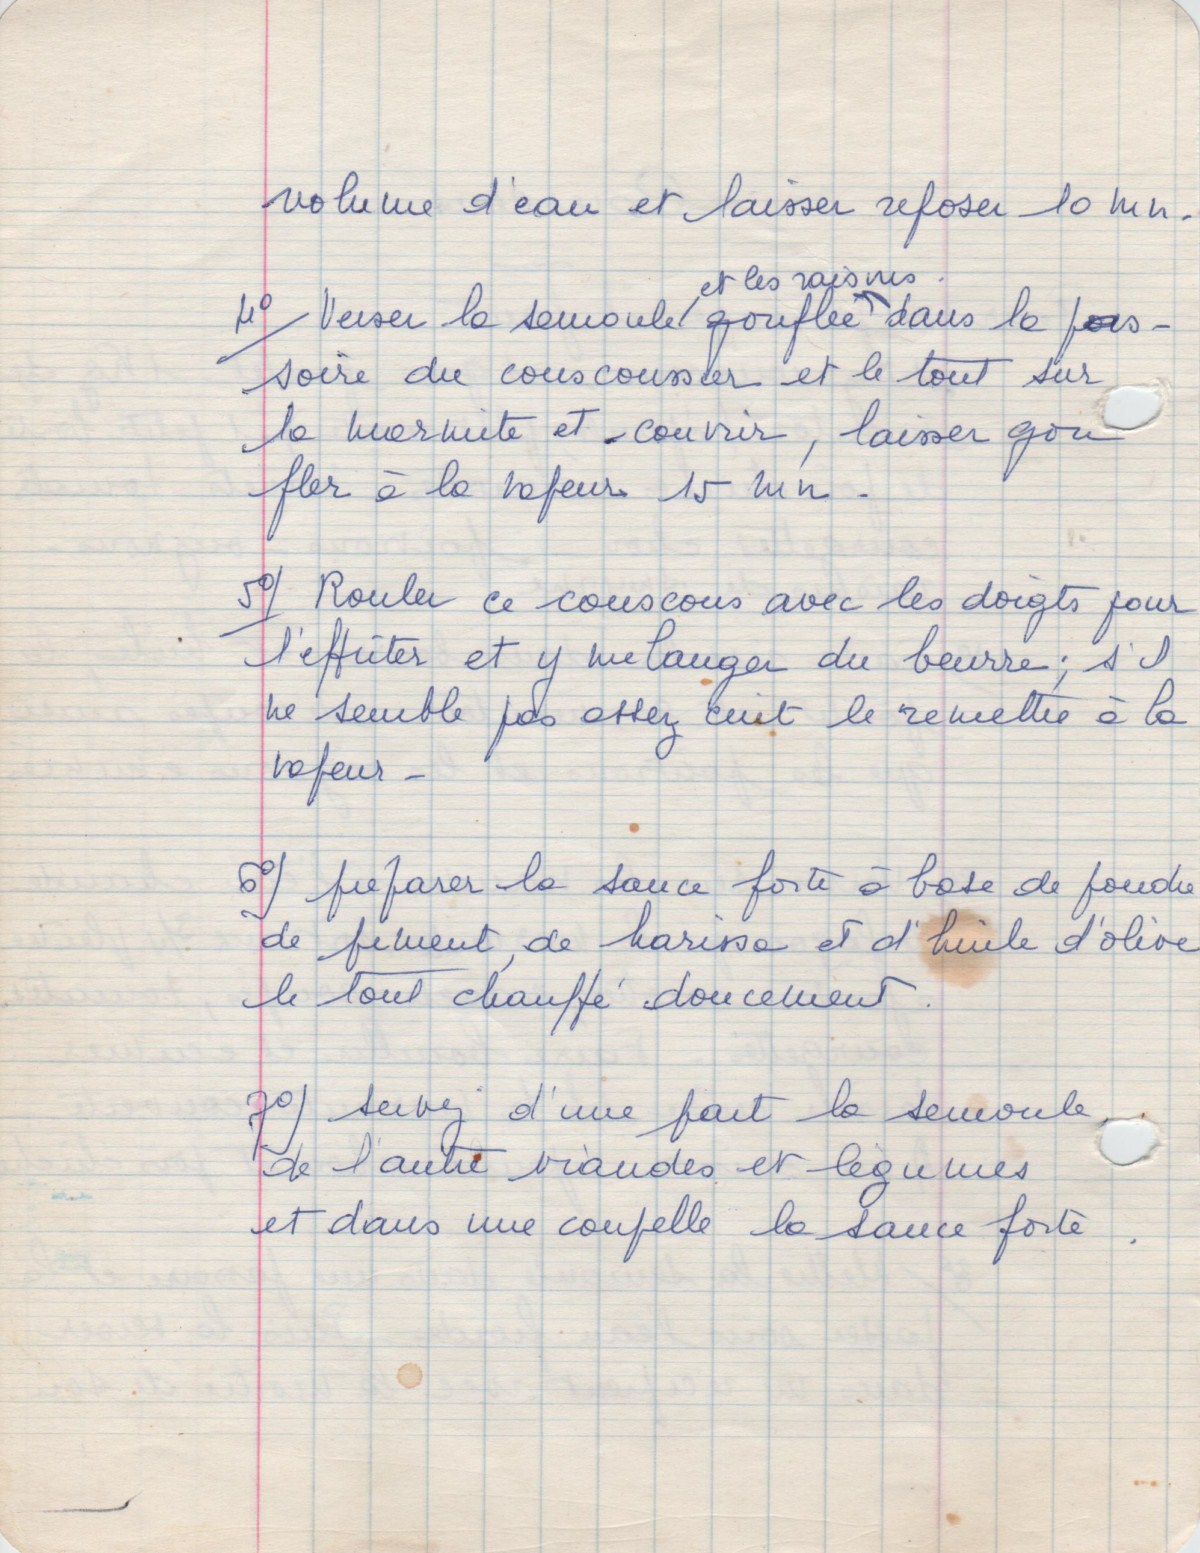 volume d'eau et laisser reposer 10 mn.
et les raisins.
4°/ Verser la semoule gonflée dans la pas-
soire du couscoussier et le tout sur
la marmite et couvrir, laisser gon
fler à la vapeur 15 mn.
5°/ Rouler ce couscous avec les doigts pour
l'effriter et y mélanger du beurre; s'il
ne semble pas assez cuit le remettre à la
vapeur -
6°/ préparer la sauce forte à base de poudre
de piment, de harissa et d'huile d'olive
le tout chauffé doucement.
7°/ servez d'une part la semoule,
de l'autre viandes et légumes
et dans une coupelle la sauce forte.